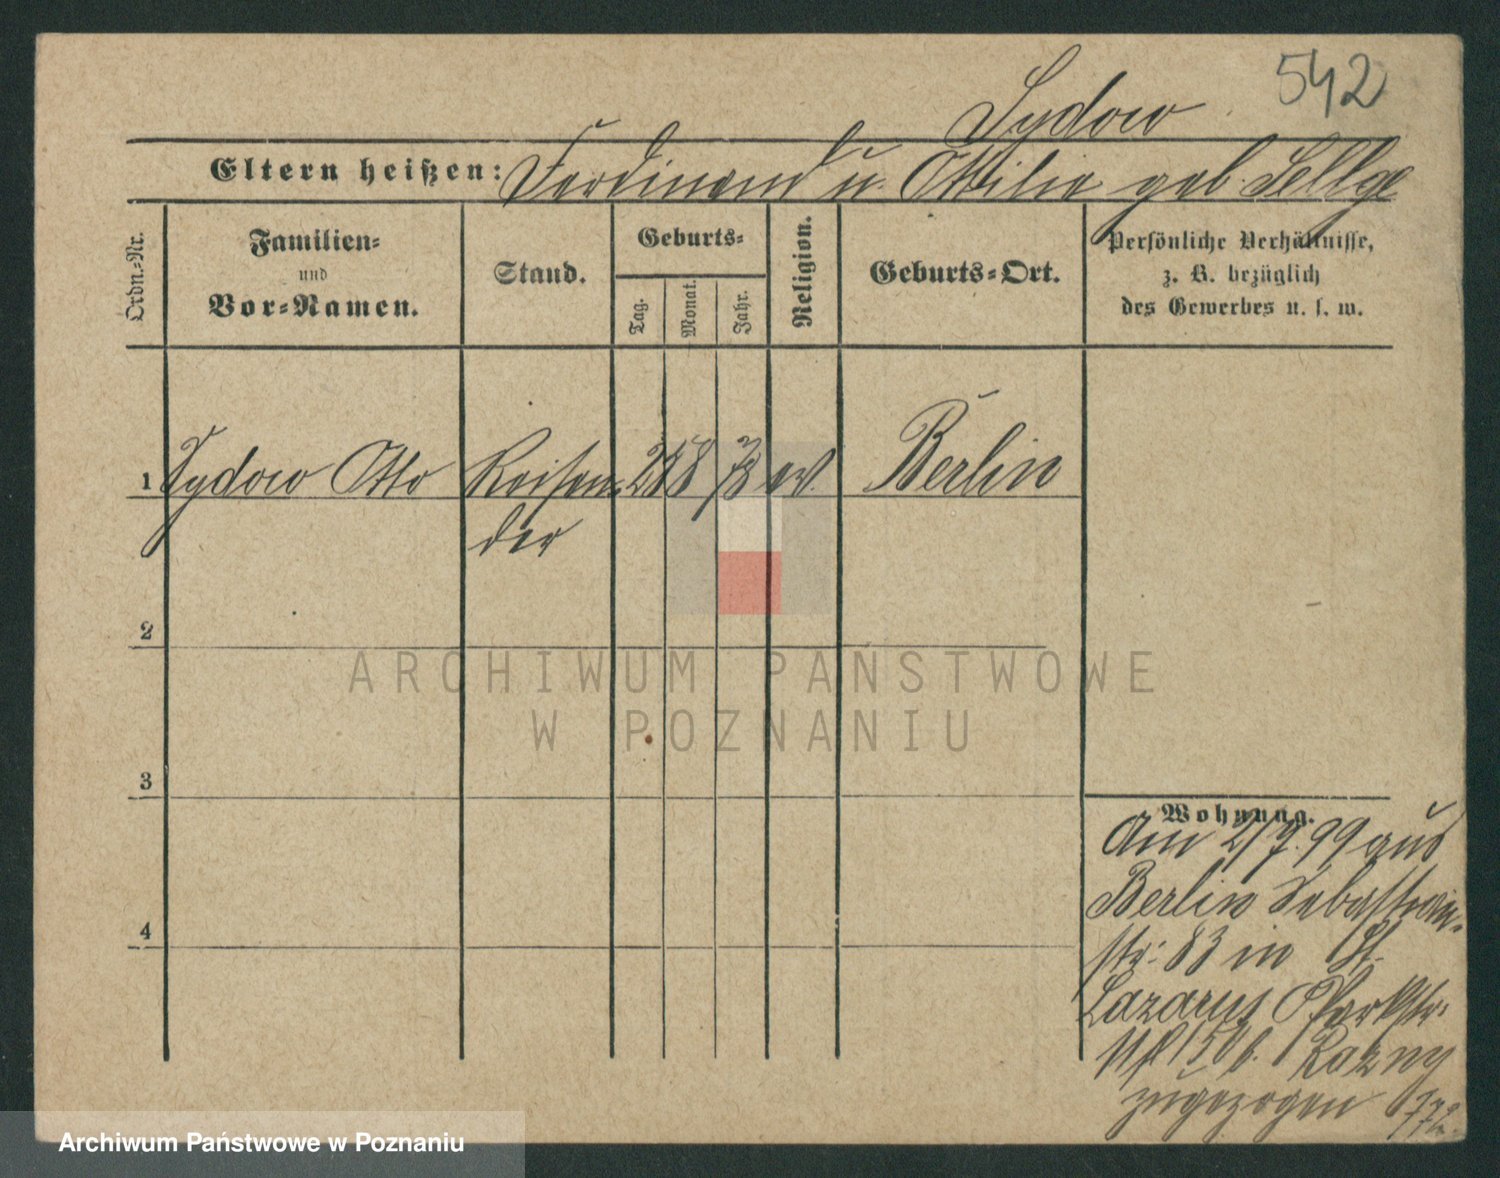 542
Sydow
Eltern heißen: Ferdinand u. Ottilie geb. Sellge
Ordn.-Nr.
Familien-
und
Vor-Namen.
Stand.
Geburts-
Tag.
Monat.
Jahr.
Religion.
Geburts-Ort.
Persönliche Verhältnisse,
z. B. bezüglich
des Gewerbes u. s. w.
1 Sydow Otto Reisen- 28 8 73 ev. Berlin
der
2
ARCHIWUM PAŃSTWOWE
W POZNANIU
3
4
Wohnung.
Am 2/7.99 aus
Berlin Sebastian-
str: 83 in St.
Lazarus Parkstr:
b.
zugezogen
Archiwum Państwowe w Poznaniu